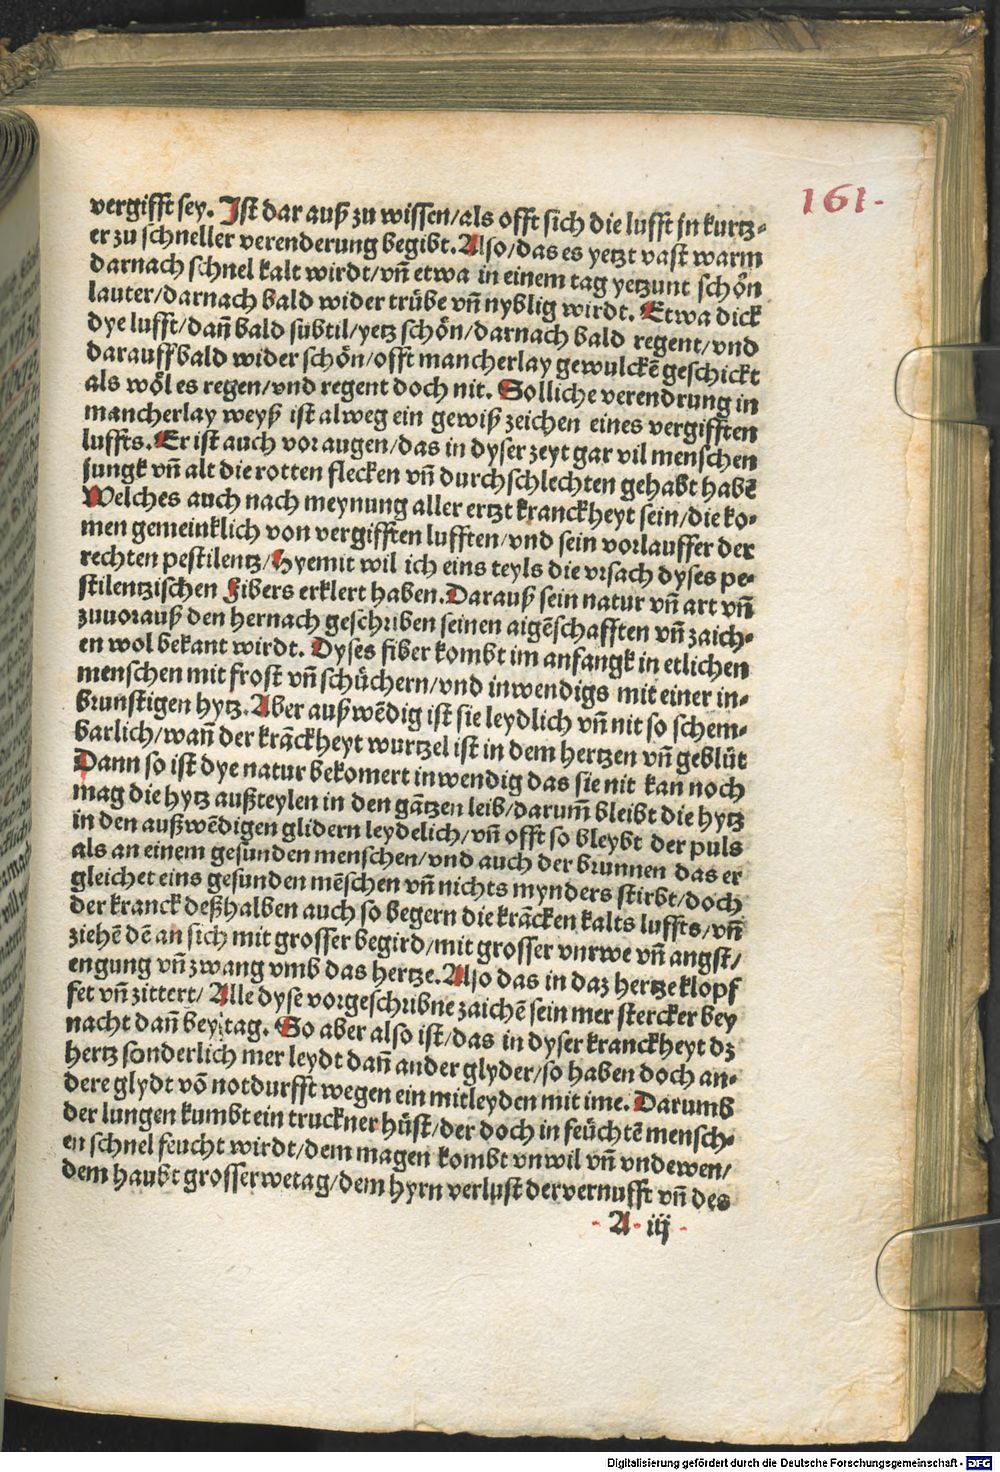 161.
vergifft sey. Ist dar auß zu wissen/als offt sich die lufft jn kurtz⸗
er zu schneller verenderung begibt. Also/das es yetzt vast warm
darnach schnel kalt wirdt/vñ etwa in einem tag yetzunt schön
lauter/darnach bald wider trübe vñ nyblig wirdt. Etwa dick
dye lufft/dañ bald subtil/yetz schön/darnach bald regent/vnd
darauff bald wider schön/offt mancherlay gewulckē geschickt
als wöl es regen/vnd regent doch nit. Solliche verendrung in
mancherlay weyß ist alweg ein gewiß zeichen eines vergifften
luffts. Er ist auch vor augen/das in dyser zeyt gar vil menschen
jungk vñ alt die rotten flecken vñ durchschlechten gehabt habē
Welches auch nach meynung aller ertzt kranckheyt sein/die ko⸗
men gemeinklich von vergifften lufften/vnd sein vorlauffer der
rechten pestilentz/Hyemit wil ich eins teyls die vrsach dyses pe⸗
stilentzischen Fibers erklert haben. Darauß sein natur vñ art vñ
zuuorauß den hernach geschriben seinen aigēschafften vñ zaich⸗
en wol bekant wirdt. Dyses fiber kombt im anfangk in etlichen
menschen mit frost vñ schüchern/vnd inwendigs mit einer in⸗
brunstigen hytz. Aber außwēdig ist sie leydlich vñ nit so schem⸗
barlich/wañ der krāckheyt wurtzel ist in dem hertzen vñ geblüt
Dann so ist dye natur bekomert inwendig das sie nit kan noch
mag die hytz außteylen in den gātzen leib/darum̄ bleibt die hytz
in den außwēdigen glidern leydelich/vñ offt so bleybt der puls
als an einem gesunden menschen/vnd auch der brunnen das er
gleichet eins gesunden mēschen vñ nichts mynders stirbt/doch
der kranck deßhalben auch so begern die krācken kalts luffts/vñ
ziehē dē an sich mit grosser begird/mit grosser vnrwe vñ angst/
engung vñ zwang vmb das hertze. Also das in daz hertze klopf
fet vñ zittert/ Alle dyse vorgeschribne zaichē sein mer stercker bey
nacht dañ bey tag. So aber also ist/das in dyser kranckheyt dz
hertz sonderlich mer leydt dañ ander glyder/so haben doch an⸗
dere glydt vō notdurfft wegen ein mitleyden mit ime. Darumb
der lungen kumbt ein truckner hüst/der doch in feüchtē mensch⸗
en schnel feucht wirdt/dem magen kombt vnwil vñ vndewen/
dem haubt grosser wetag/dem hyrn verlust der vernufft vñ des
A iij
Digitalisierung gefördert durch die Deutsche Forschungsgemeinschaft - DFG